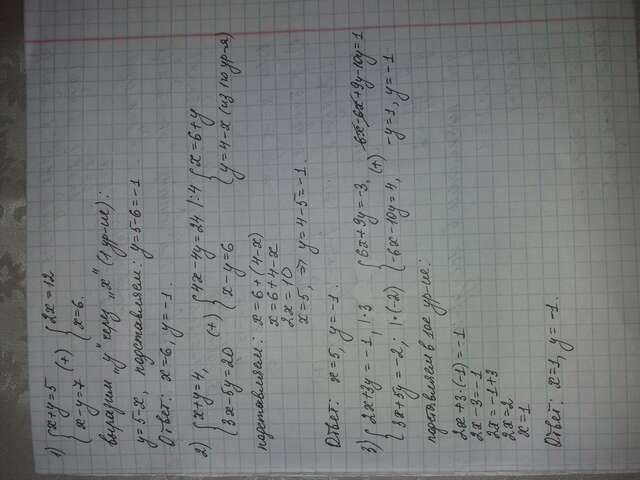 1) { x+y=5
x-y=7 (+) { 2x=12
x=6.
выразим "у" через "х" (1 ур-ие):
y=5-x, подставляем: y=5-6=-1
Ответ: x=6, y=-1.
2) { x+y=4,
3x-5y=20 (+) { 4x-4y=24 |:4
x-y=6 { x=6+y
y=4-x (из 1го ур-я)
подставляем: x=6+(4-x)
x=6+4-x
2x=10
x=5, ⇒ y=4-5=-1.
Ответ: x=5, y=-1.
3) { 2x+3y=-1, |·3
3x+5y=-2, |·(-2) { 6x+9y=-3,
-6x-10y=4, (+) 6x-6x+9y-10y=1
-y=1, y=-1
подставляем в 1ое ур-ие:
2x+3·(-1)=-1
2x-3=-1
2x=-1+3
2x=2
x=1
Ответ: x=1, y=-1.